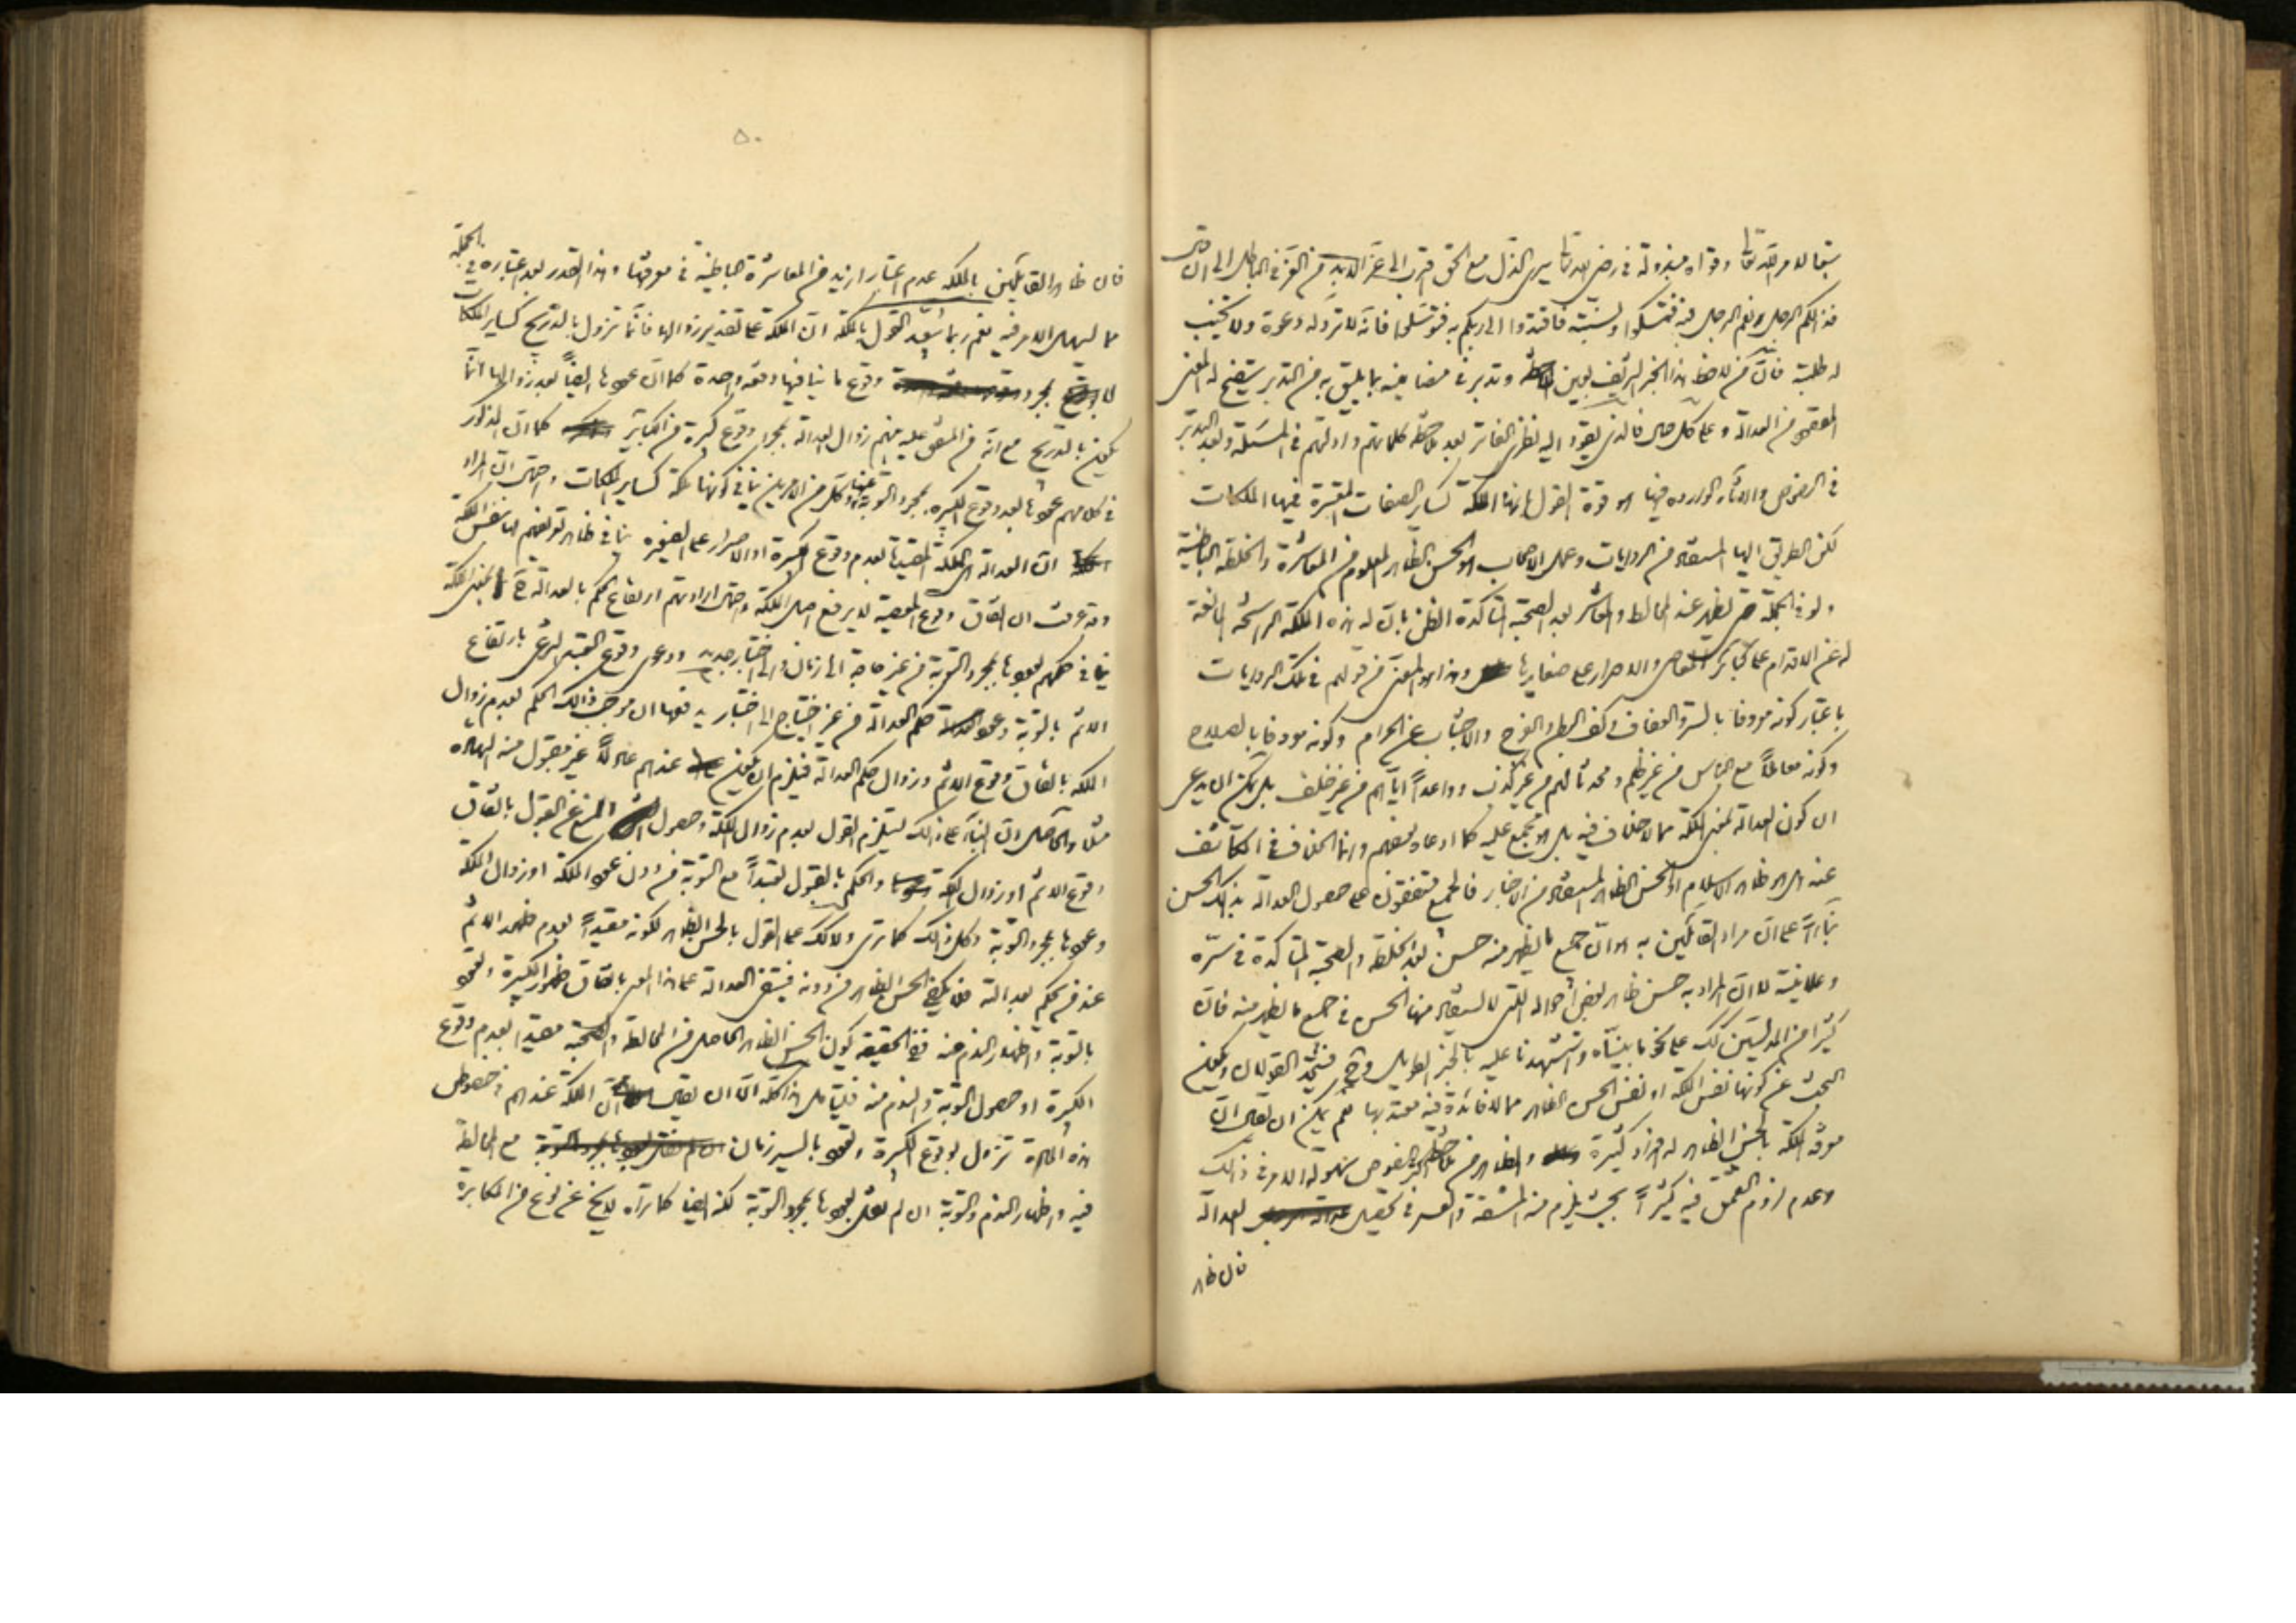 تبعا لامر الله تعالى وقواه مبذولة في رضى الله تعالى يرى الذل مع الحق اقرب الى عز الابد من العز في الباطل الى ان قال
فذلكم الرجل نعم الرجل فبه فتمسكوا وبسنته فاقتدوا والى ربكم به فتوسلوا فانه لا ترد له دعوة ولا تخيب
له طلبة فان من لاحظ هذا الخبر الشريف بعين وتدبر في مضامينه بما يليق به من التدبر يتضح له المعنى
المقصود من العدالة وعلى كل حال فالذي يقود اليه نظري الفاتر بعد ملاحظة كلماتهم وادلتهم في المسئلة وبعد التدبر
في النصوص والاثار الواردة فيها هو قوة القول بانها الملكة كساير الصفات المعتبرة فيها الملكات
لكن الطريق اليها المستفاد من الروايات وعمل الاصحاب هو الحسن الظاهر المعلوم من المعاشرة والخلطة الباطنية
ولو في الجملة حتى يظهر عند المخالط والمعاشر بعد الصحبة المتاكدة الظن بان له هذه الملكة الراسخة المانعة
له عن الاقدام على كبائر المعاصي والاصرار على صغايرها وهذا هو المعنى من قولهم في تلك الروايات
باعتبار كونه معروفا بالستر والعفاف وكف البطن والفرج والاجتناب عن الحرام وكونه معروفا بالصلاح
وكونه معاملا مع الناس من غير ظلم ومحدثا لهم من غير كذب وواعدا اياهم من غير خلف بل يمكن ان يدعى
ان كون العدالة بمعنى الملكة مما لا خلاف فيه بل هو مجمع عليه كما ادعاه بعضهم وانما الخلاف في الكاشف
عنه اهو ظاهر الاسلام او الحسن الظاهر المستفاد من الاخبار فالجميع متفقون على حصول العدالة بذلك الحسن
بناء على ان مراد القائلين به هو ان جميع ما يظهر منه حسن بعد الخلطة والصحبة المتاكدة في سره
وعلانيته لا ان المراد به حسن ظاهر بعض احواله التي لا يستفاد منها الحسن في جميع ما يظهر منه فان
كثيرا من المدلسين كك على نحو ما بيناه واستشهدنا عليه بالخبر الطويل وح فيتحد القولان ويكون
البحث عن كونها نفس الملكة او نفس الحسن الظاهر مما لا فائدة فيه معتد بها نعم يمكن ان يقال ان
معرفة الملكة بالحسن الظاهر له افراد كثيرة والظاهر من ملاحظة النصوص سهولة الامر في ذلك
وعدم لزوم التعمق فيه كثيرا بحيث يلزم منه المشقة والعسر في تحصيل العدالة
فان ظاهر
٥٠
فان ظاهر القائلين بالملكة عدم اعتبار ازيد من المعاشرة الباطنية في معرفتها وهذا القدر بعد اعتباره في الجملة
مما يسهل الامر فيه نعم ربما يبعد القول بالملكة ان الملكة على تقدير زوالها فانما تزول بالتدريج كساير الملكات
لا بمجرد وقوع ما ينافيها دفعة واحدة كما ان عودها ايضا بعد زوالها انما
يكون بالتدريج مع انه من المتفق عليه بينهم زوال العدالة بمجرد وقوع كبيرة من الكبائر كما ان المذكور
في كلامهم عودها بعد وقوع الكبيرة بمجرد التوبة عنها وكل من الامرين ينافي كونها ملكة كساير الملكات واحتمال ان المراد
ان العدالة هي الملكة المقيدة بعدم وقوع الكبيرة او الاصرار على الصغيرة ينافي ظاهر تعريفهم لها بنفس الملكة
وقد عرفت ان اتفاق وقوع المعصية لا يرفع اصل الملكة واحتمال ارادتهم ارتفاع الحكم بالعدالة ح لا بمعنى الملكة
ينافي حكمهم بعودها بمجرد التوبة من غير حاجة الى زمان والى اختبار جديد ودعوى وقوع التعبد الشرعي بارتفاع
الاثم بالتوبة وعود حكم العدالة من غير احتياج الى اختبار يدفعها ان موجب ذلك الحكم بعدم زوال
الملكة باتفاق وقوع الاثم وزوال حكم العدالة فيلزم ان يكون عندهم عادلا غير مقبول منه الشهادة
مثلا والحاصل ان البناء على ذلك يستلزم القول بعدم زوال الملكة وحصول المنع عن القول باتفاق
وقوع الاثم او زوال الملكة والحكم بالقبول تعبدا مع التوبة من دون عود الملكة او زوال الملكة
وعودها بمجرد التوبة وكل ذلك كما ترى ولا كك على القول بالحسن الظاهر لكونه مقيدا بعدم ظهور الاثم
عند من يحكم بعدالته فلا يكفي الحسن الظاهر من دونه فينتفي العدالة على هذا المعنى باتفاق ظهور الكبيرة وتعود
بالتوبة واظهار الندم عنه ففي الحقيقة يكون الحسن الظاهر الحاصل من المخالطة والصحبة مقيدا بعدم وقوع
الكبيرة او حصول التوبة والندم منه فليتامل الا ان يقال ان الملكة عندهم في خصوص
هذه المادة تزول بوقوع الكبيرة وتعود باليسير زمان مع المخالطة
فيه واظهار الندم والتوبة ان لم نقل بعودها بمجرد التوبة لكنه ايضا كما تراه لا يخ عن نوع من المكابرة